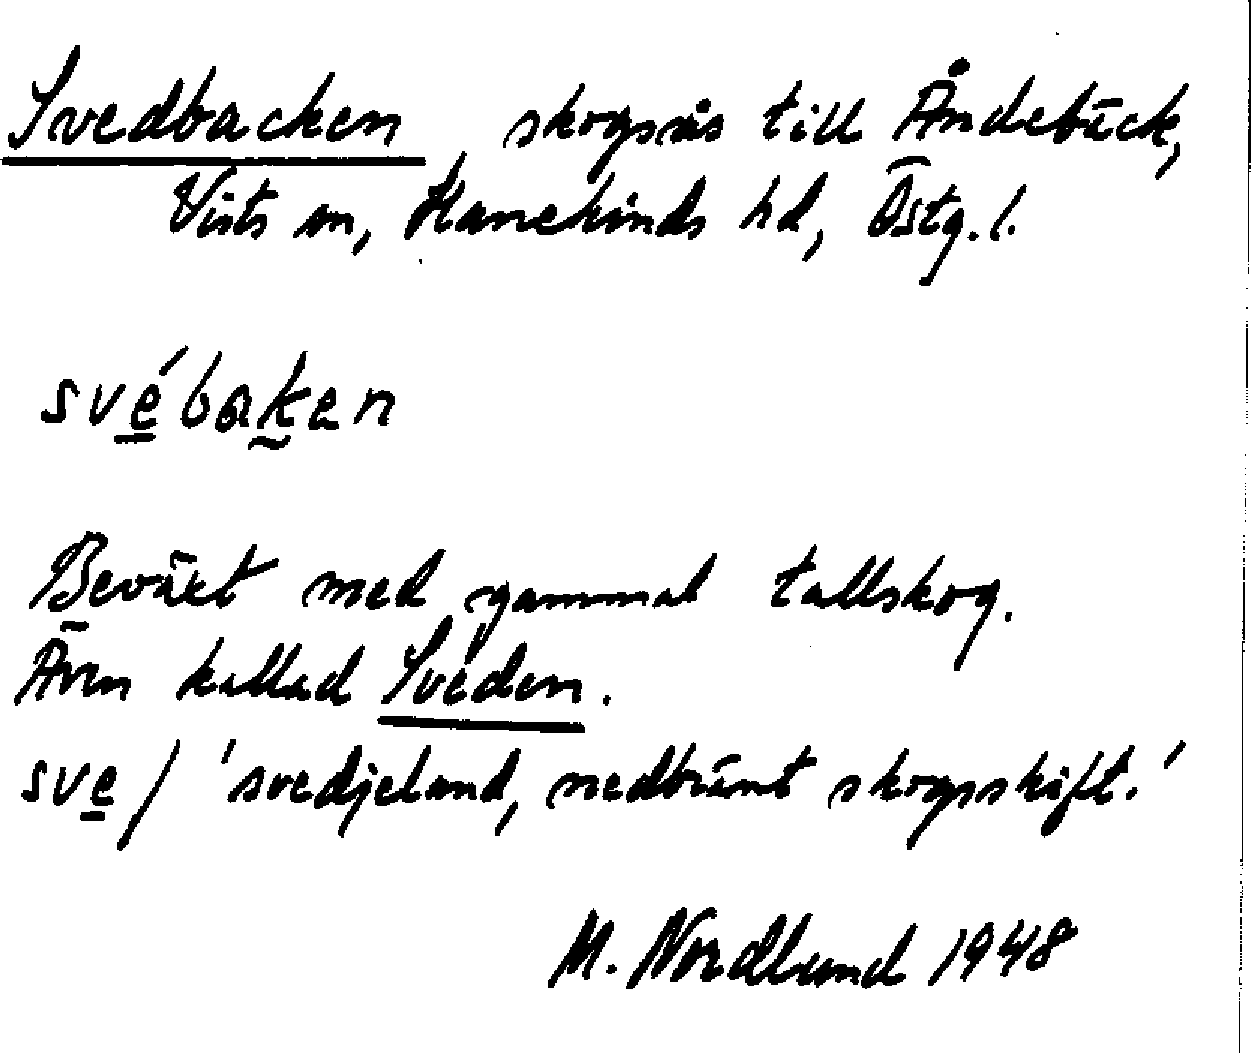 Svedbacken, skogsås till Åndebäck,
Vists sn, Hanekinds hd, Östg. l.
své̲bak̰en
Beväxt med gammal tallskog.
Även kallad Sveden.
sve̲/ 'svedjeland, nedbränt skogsskift.'
M. Nordlund 1948